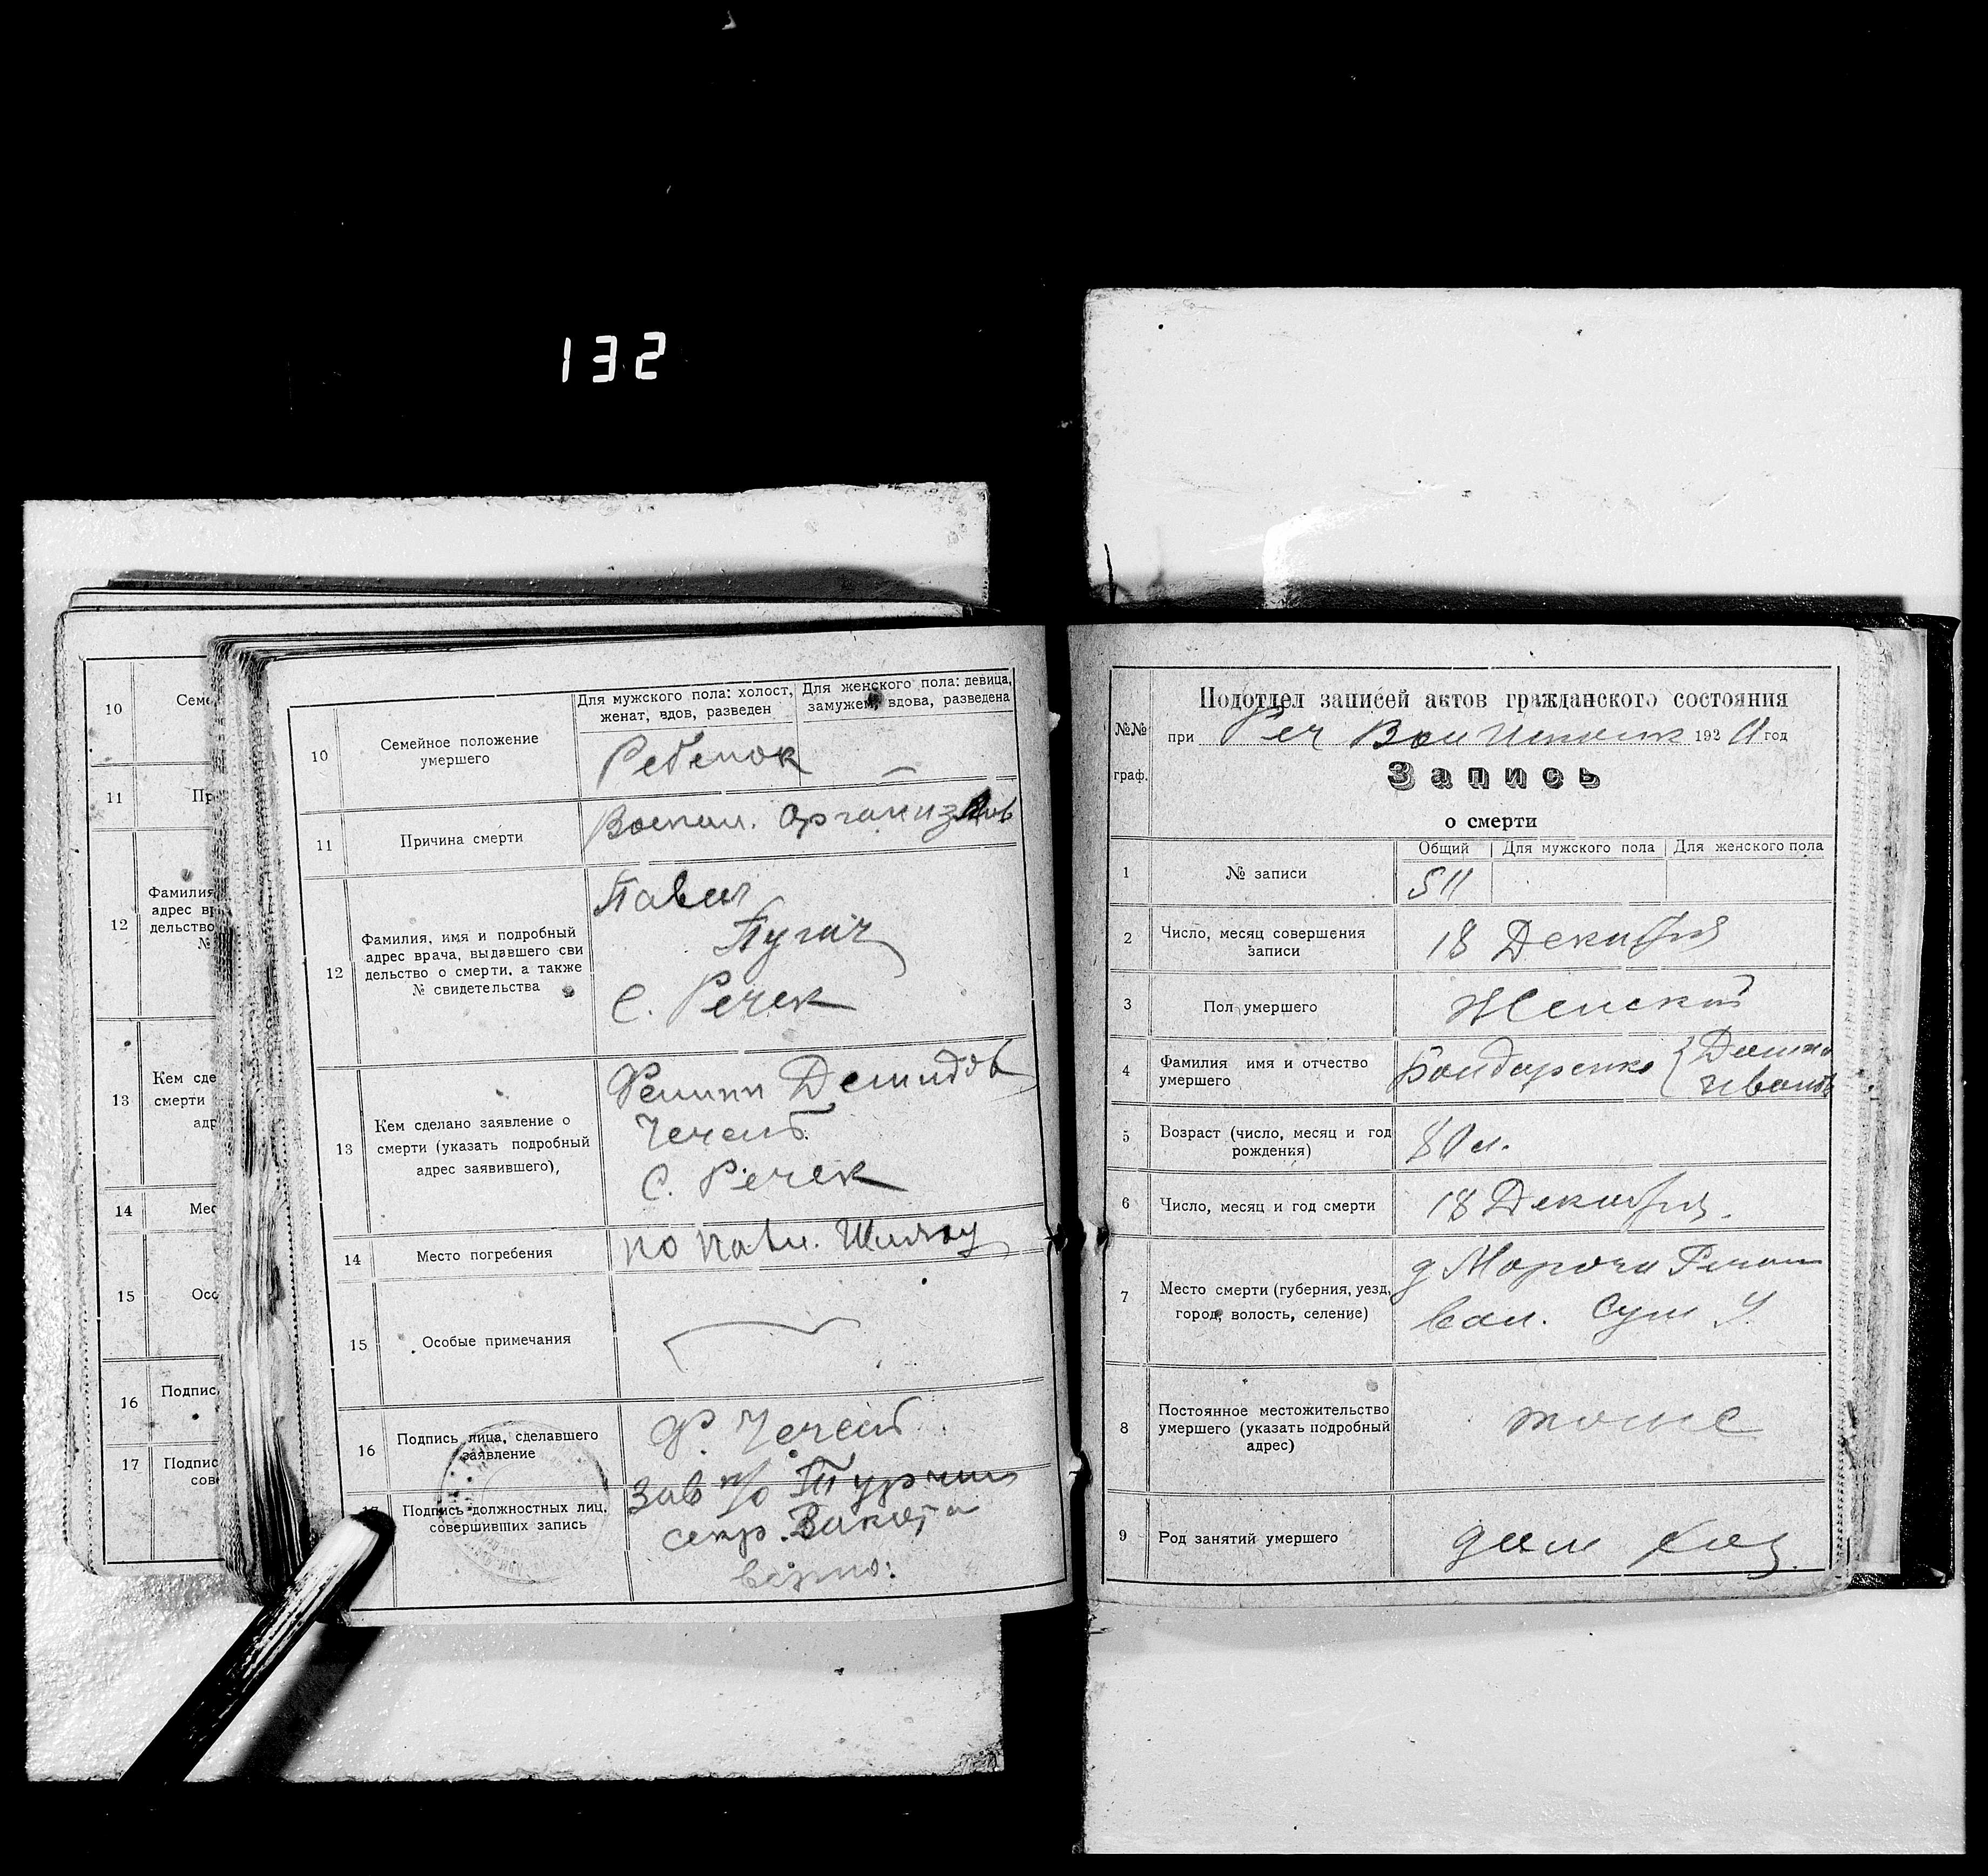 132
10
Семе
11
Пр
12
Фамилия
адрес вр
дельство
№
13
Кем сде
смерти
адр
14
Мес
15
Осо
16
Подпис
17
Подпис
сов
10
Семейное положение
умершего
Для мужского пола: холост,
женат, вдов, разведен
Для женского пола: девица,
замужем, вдова, разведена
Ребенок
11
Причина смерти
Воспал.
12
Фамилия, имя и подробный
адрес врача, выдавшего сви
дельство о смерти, а также
№ свидетельства
Павел
Пугач
С. Речек
13
Кем сделано заявление о
смерти (указать подробный
адрес заявившего),
Демидов
С. Речек
14
Место погребения
15
Особые примечания
16
Подпись лица, сделавшего
заявление
Ф.
17
Подпись должностных лиц,
совершивших запись
Зав п/о
секр.
верно:
№№
граф.
Подотдел записей актов гражданского состояния
при Реч Вол Исполк 192 год
Запись
о смерти
1
№ записи
Общий
Для мужского пола
Для женского пола
511
2
Число, месяц совершения
записи
18 Декабря
3
Пол умершего
Женский
4
Фамилия имя и отчество
умершего
Бондаренко
Иванов
5
Возраст (число, месяц и год
рождения)
80 л.
6
Число, месяц и год смерти
18 Декабря.
7
Место смерти (губерния, уезд,
город, волость, селение)
д Мороча Речан
вол. Сум У.
8
Постоянное местожительство
умершего (указать подробный
адрес)
тоже
9
Род занятий умершего
дом хоз.